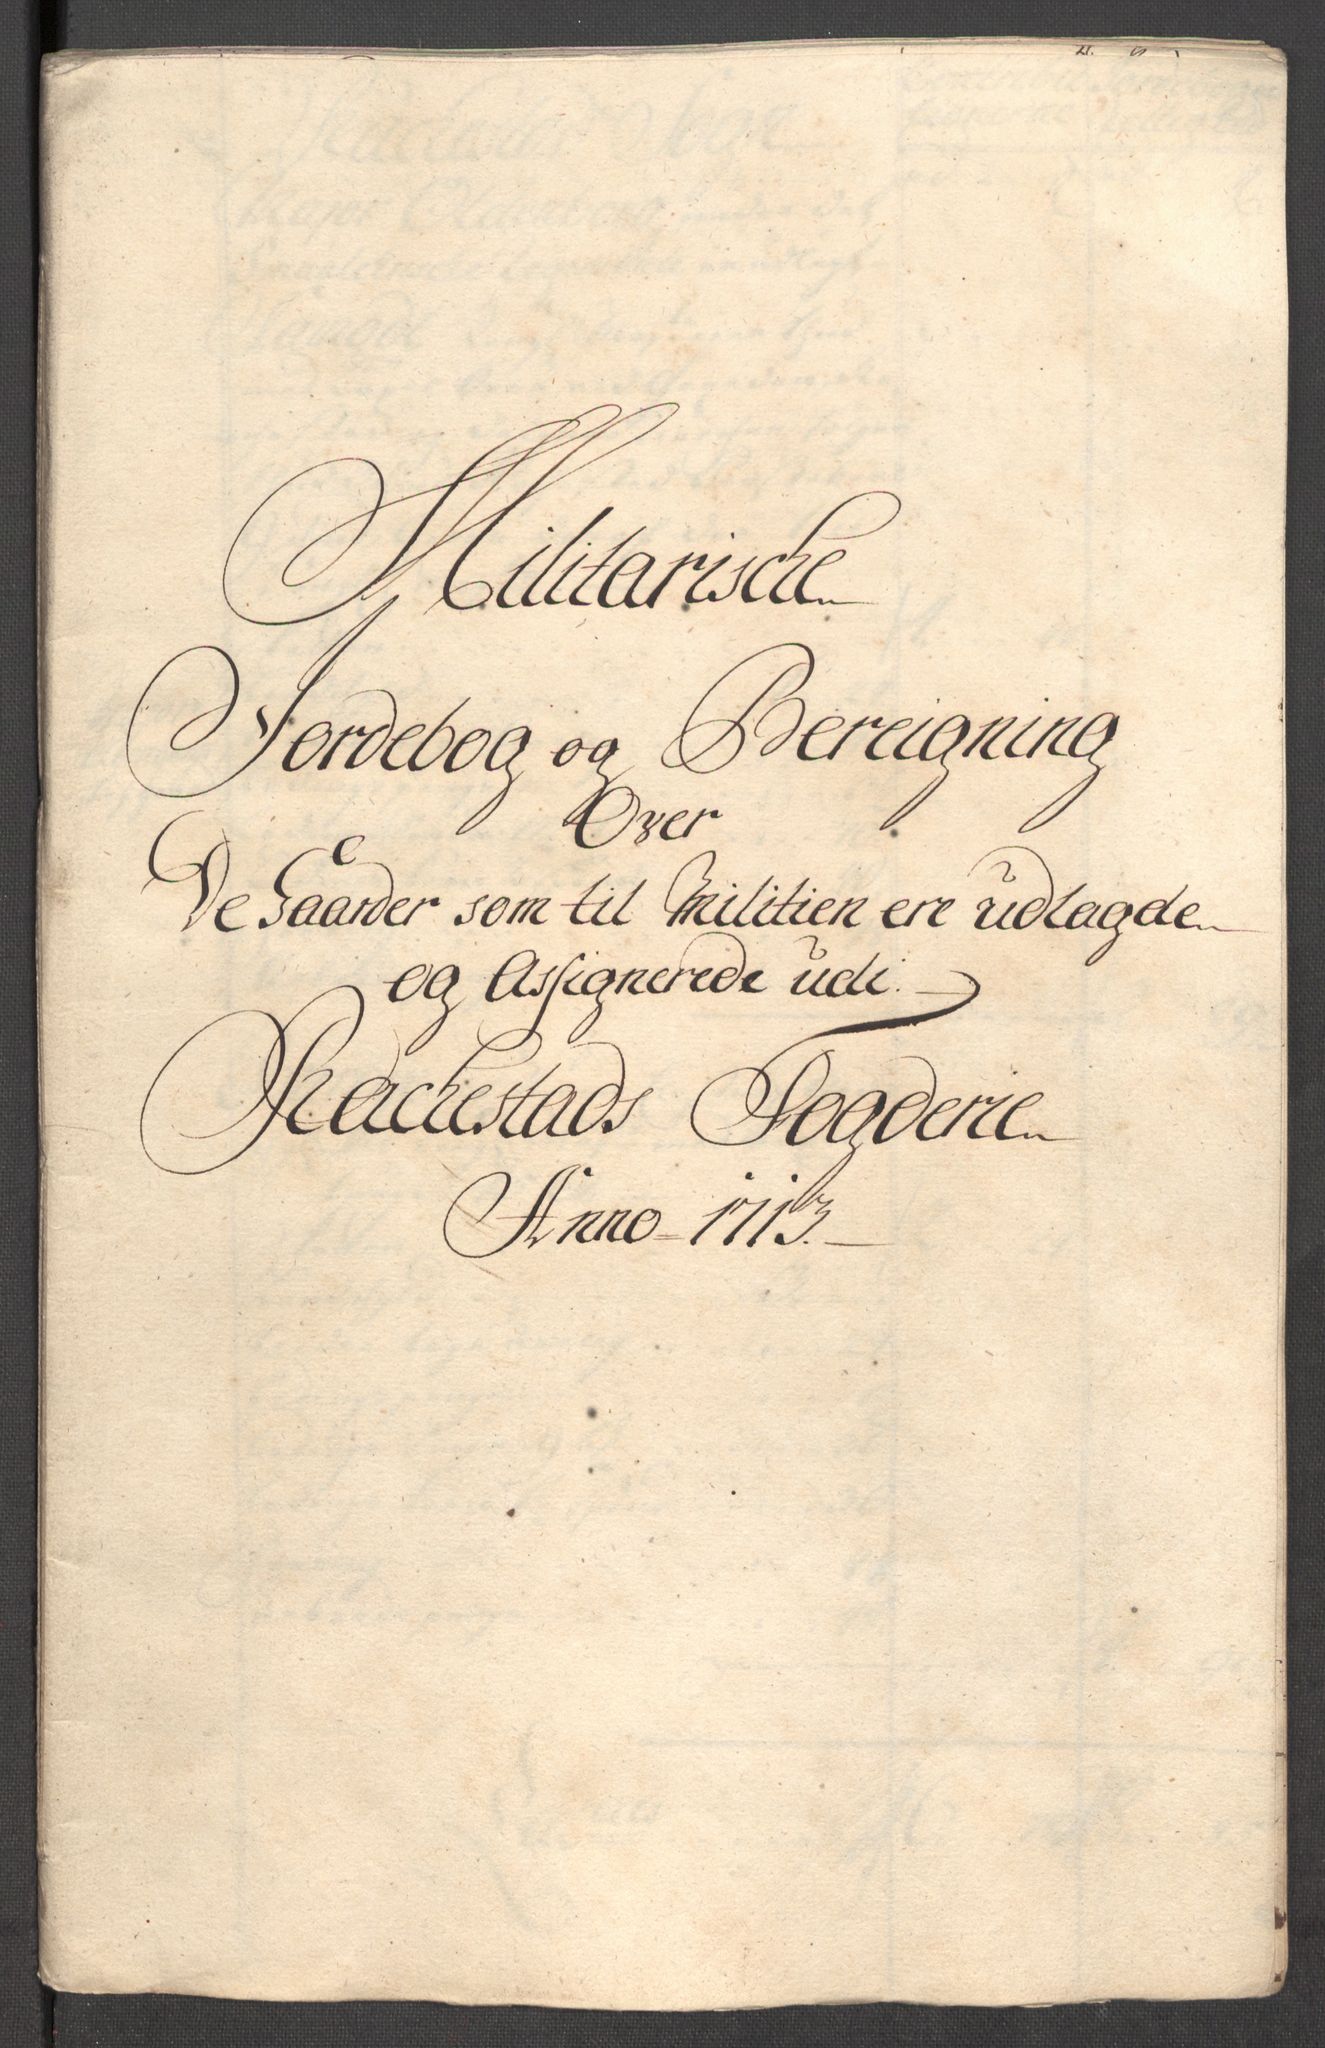 Militarische
Jordebog og Bereigning
Over
De Gaarder som til Militien ere udlagde
og Assignerede udi
Rackestads Fogderie
Anno 1713.